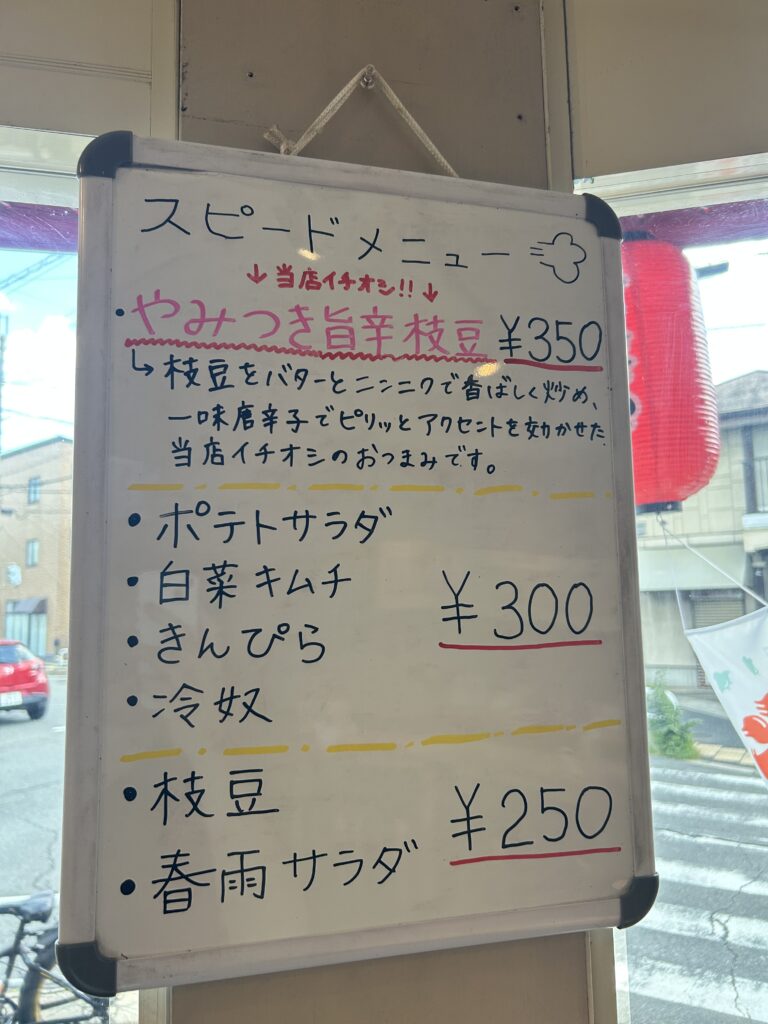 スピードメニュー
↓当店イチオシ!!↓
・やみつき旨辛枝豆 ¥350
↳枝豆をバターとニンニクで香ばしく炒め、
一味唐辛子でピリッとアクセントを効かせた
当店イチオシのおつまみです。
・ポテトサラダ
・白菜キムチ
¥300
・きんぴら
・冷奴
・枝豆
¥250
・春雨サラダ